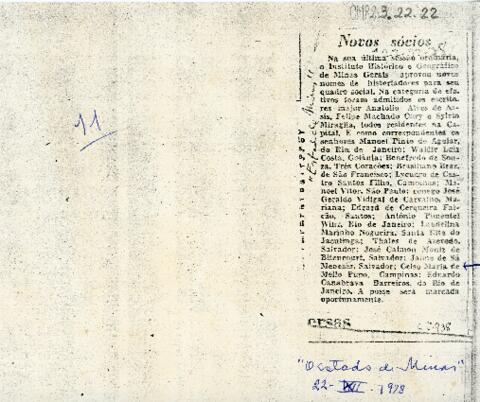 CMP 2.3.22.22
Novos sócios
Na sua última sessão ordinária,
o Instituto Histórico e Geográfico
de Minas Gerais aprovou novos
nomes de historiadores para seu
quadro social. Na categoria de efe-
tivos foram admitidos os escrito-
res major Anatólio Alves de As-
sis, Felipe Machado Cury e Sylvio
Miraglia, todos residentes na Ca-
pital. E como correspondentes os
senhores Manoel Pinto de Aguiar,
do Rio de Janeiro; Waldir Luiz
Costa, Goiânia; Benefredo de Sou-
za, Três Corações; Brasiliano Braz,
de São Francisco; Lycurgo de Cas-
tro Santos Filho, Campinas; Ma-
noel Vitor, São Paulo; conego José
Geraldo Vidigal de Carvalho, Ma-
riana; Edgard de Cerqueira Fal-
cão, Santos; Antônio Pimentel
Winz, Rio de Janeiro; Laudelina
Marinho Nogueira, Santa Rita do
Jacutinga; Thales de Azevedo,
Salvador; José Calmon Moniz de
Bitencourt, Salvador; Jaime de Sá
Menezes, Salvador; Celso Maria de
Mello Pupo, Campinas; Eduardo
Canabrava Barreiros, do Rio de
Janeiro. A posse será marcada
oportunamente.
11
ersas
"O estado de Minas"
22-XII-1978